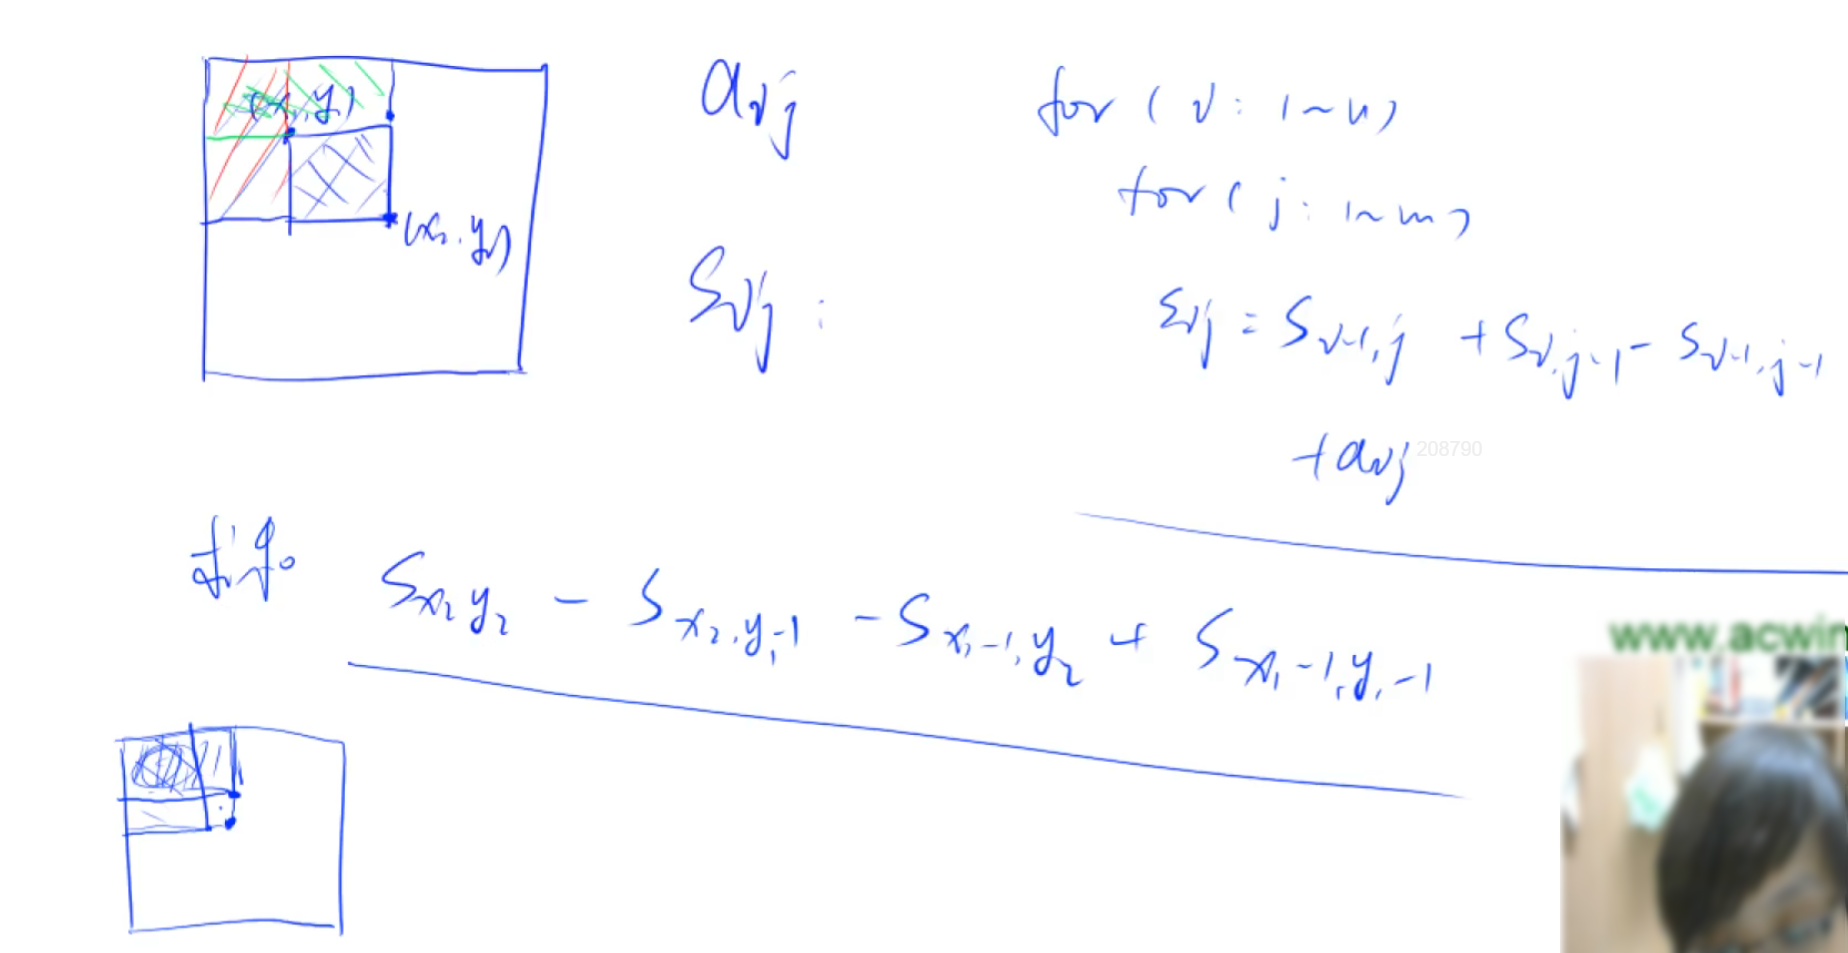 (x₁,y₁)
(x₂,y₂)
aᵢⱼ
Sᵢⱼ :
for ( i : 1~n )
for ( j : 1~m )
Sᵢⱼ = Sᵢ₋₁,ⱼ + Sᵢ,ⱼ₋₁ - Sᵢ₋₁,ⱼ₋₁
+ aᵢⱼ
208790
S x₂y₂ - S x₂,y₁-1 - S x₁-1,y₂ + S x₁-1,y₁-1
www.acwin